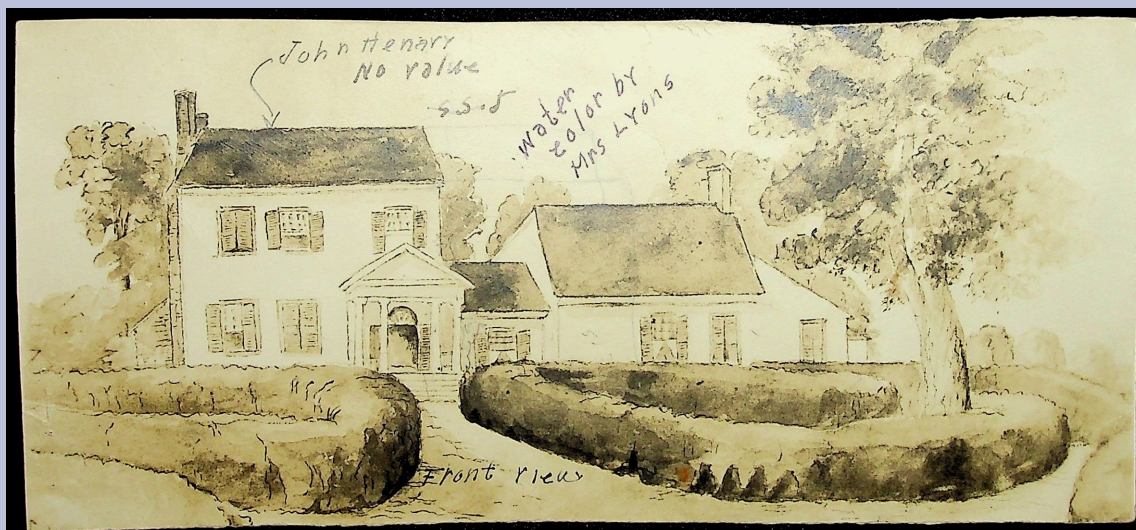 John Henary
No value
S.S.J
Water
color by
Mrs Lyons
Front View